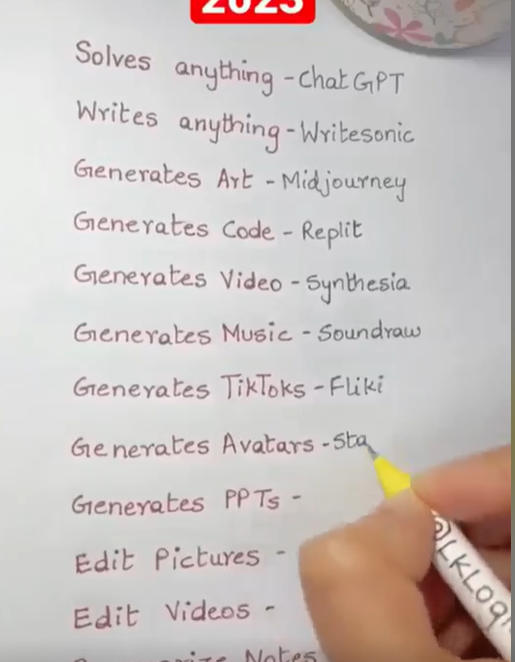 2023
Solves anything - ChatGPT
Writes anything - Writesonic
Generates Art - Midjourney
Generates Code - Replit
Generates Video - Synthesia
Generates Music - Soundraw
Generates TikToks - Fliki
Generates Avatars - Sta
Generates PPTs -
Edit Pictures -
Edit Videos -
Notes
@LKLogi